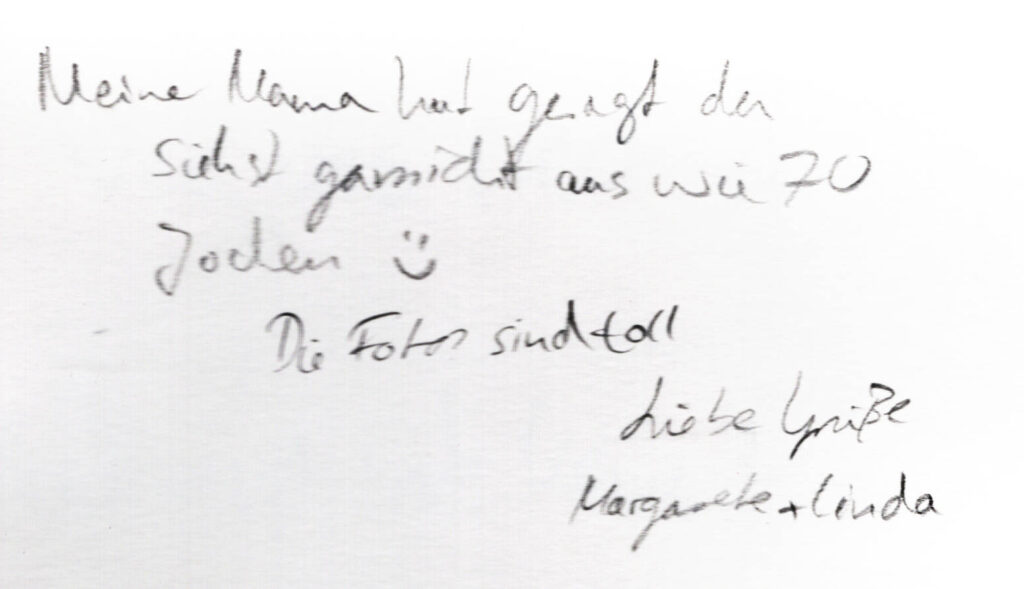 Meine Mama hat gesagt du
siehst garnicht aus wie 70
Jochen :)
Die Fotos sind toll
Liebe Grüße
Margarete + Linda